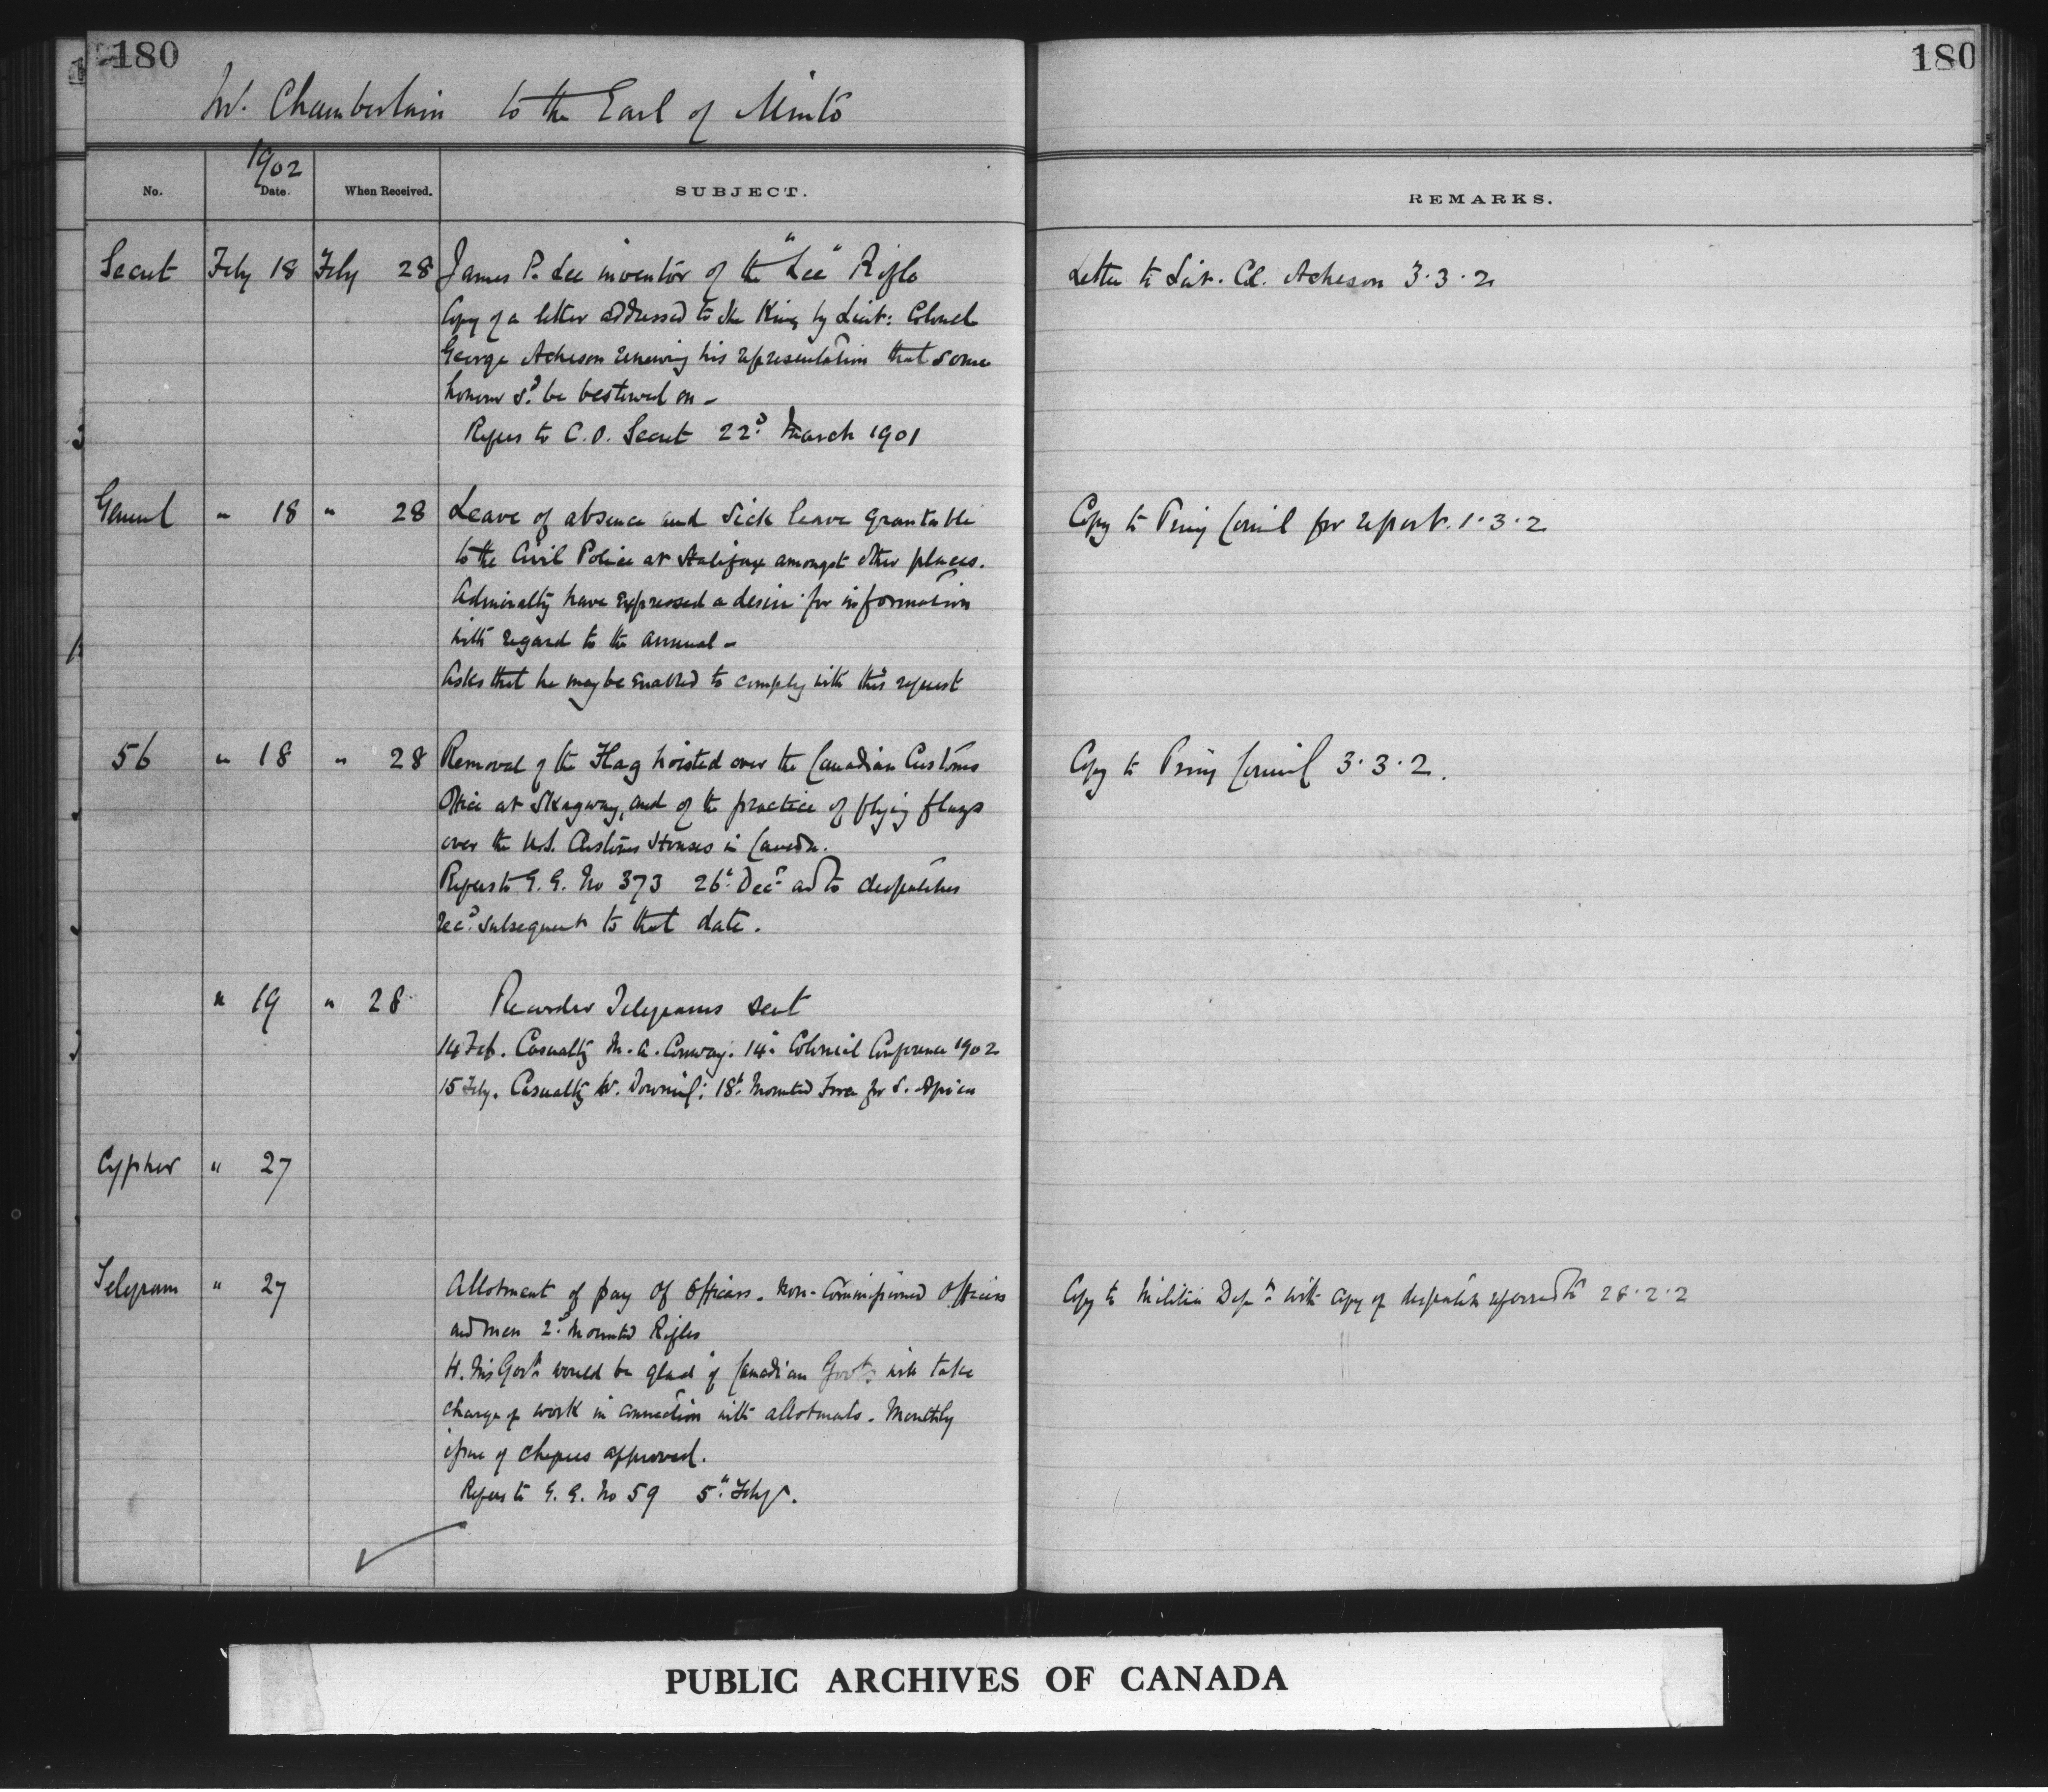 180
180
Mr. Chamberlain to the Earl of Minto
1902
No. Date. When Received. SUBJECT. REMARKS.
Secret Feby 18 Feby 28 James P. Lee inventor of the "Lee" Rifle
Letter to Lieut. Col. Acheson 3.3.2
Copy of a letter addressed to the King by Lieut: Colonel
George Acheson renewing his representation that some
honour sd. be bestowed on -
Refers to C.O. Secret 22d March 1901
General " 18 " 28 Leave of absence and sick leave grantable
Copy to Privy Council for report. 1.3.2
to the Civil Police at Halifax amongst other places.
Admiralty have expressed a desire for information
with regard to the annual -
Asks that he may be enabled to comply with this request
56 " 18 " 28 Removal of the Flag hoisted over the Canadian Customs
Copy to Privy Council 3.3.2.
Office at Skagway, and of the practice of flying flags
over the U.S. Customs Houses in Canada.
Refers to G.G. No 373 26th Decr and to despatches
recd. subsequent to that date.
" 19 " 28 Recorder Telegrams sent
14 Feb. Casualty M. A. Conway. 14th Colonial Conference 1902
15 Feby. Casualty W. : 18th Mounted Force for S. Africa
Cypher " 27
Telegram " 27 Allotment of pay of Officers. Non-Commissioned Officers
Copy to Militia Dept with copy of despatch referred to 28.2.2
and men 2d Mounted Rifles
H. M's Govt. would be glad if Canadian Govt. will take
charge of work in connection with allotments. Monthly
issue of cheques approved.
Refers to G.G. No 59 5th Feby.
PUBLIC ARCHIVES OF CANADA